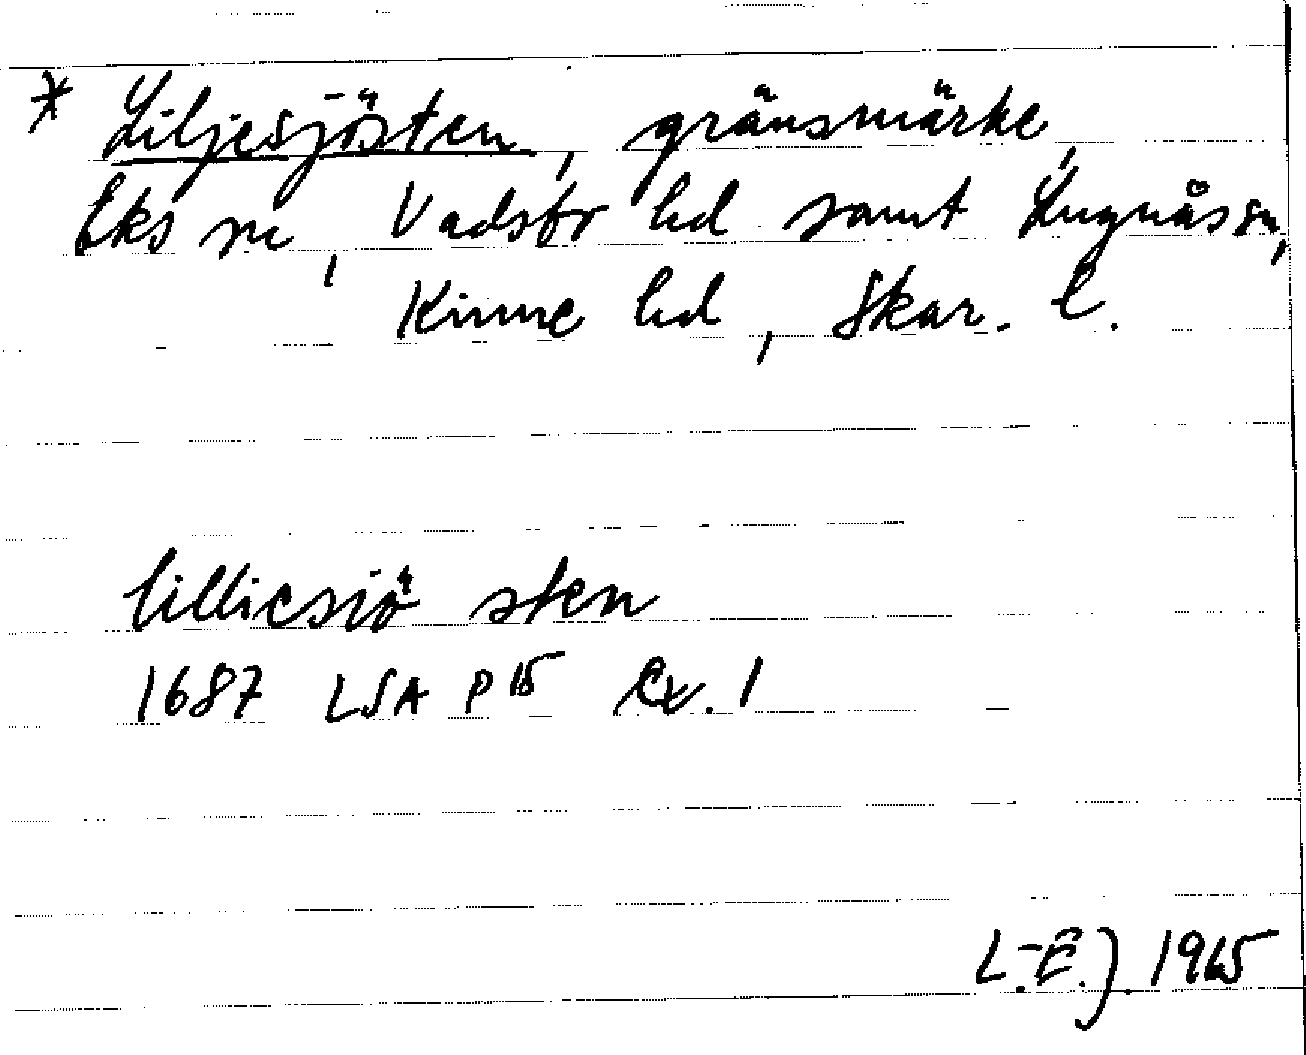 * Liljesjösten, gränsmärke,
Eks sn, Vadsbr hd samt Lugnås sn,
Kinne hd, Skar. l.
lilliesiö sten
1687 LSA P 15 Ex. 1
L.-E.J. 1965